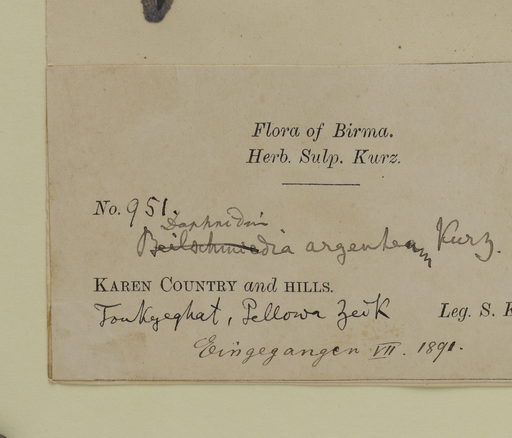 Flora of Birma.
Herb. Sulp. Kurz.
No. 951.
Daphnidium
Beilschmiedia argenteum Kurz.
KAREN COUNTRY and HILLS.
Toukyeghat, Pellowa Zeik Leg. S. K
Eingegangen VII. 1891.